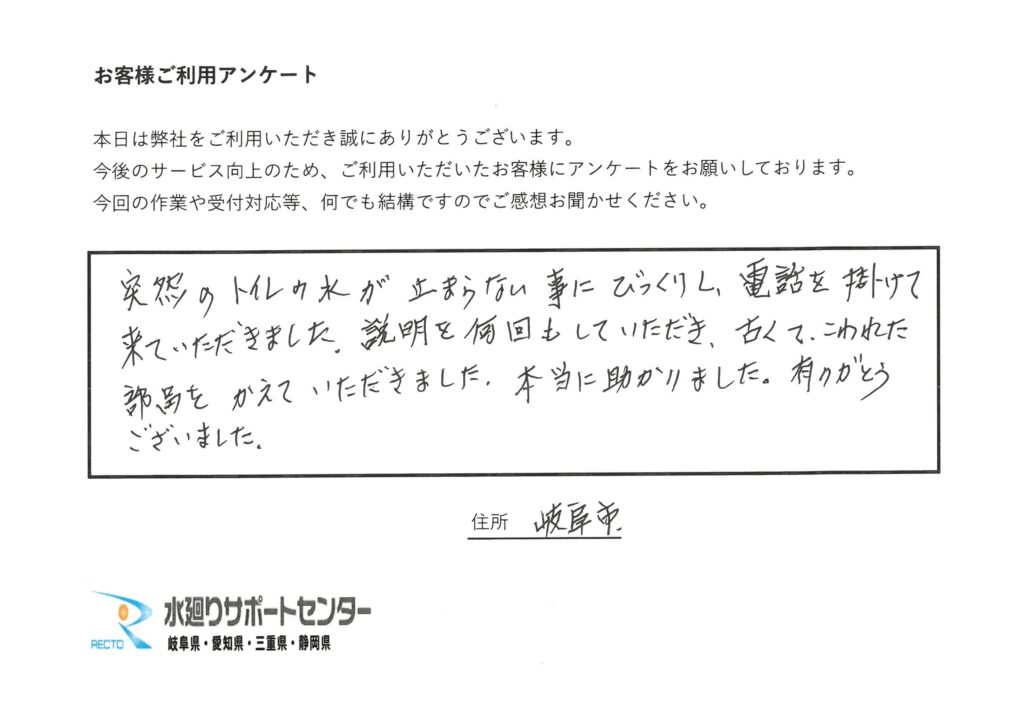 お客様ご利用アンケート
本日は弊社をご利用いただき誠にありがとうございます。
今後のサービス向上のため、ご利用いただいたお客様にアンケートをお願いしております。
今回の作業や受付対応等、何でも結構ですのでご感想お聞かせください。
突然のトイレの水が止まらない事にびっくりし、電話を掛けて
来ていただきました。説明を何回もしていただき、古くて、こわれた
部品をかえていただきました。本当に助かりました。有りがとう
ございました。
住所 岐阜市
RECTO
水廻りサポートセンター
岐阜県・愛知県・三重県・静岡県